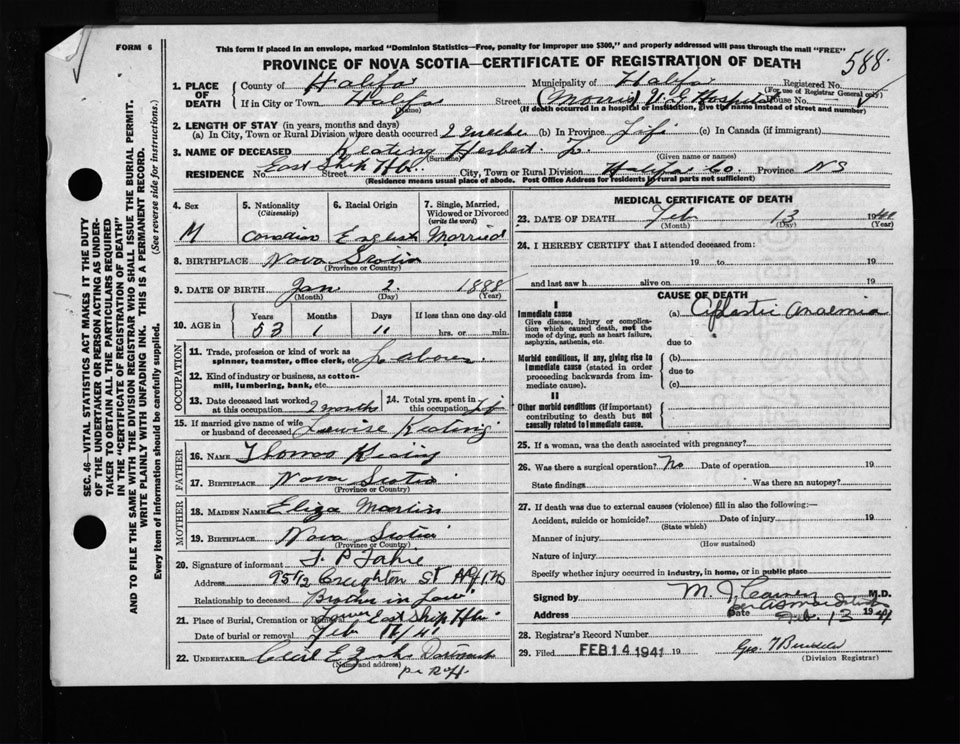 FORM 6
This form if placed in an envelope, marked "Dominion Statistics—Free, penalty for improper use $300," and properly addressed will pass through the mail "FREE"
PROVINCE OF NOVA SCOTIA—CERTIFICATE OF REGISTRATION OF DEATH
588
SEC. 46—VITAL STATISTICS ACT MAKES IT THE DUTY
OF THE UNDERTAKER OR PERSON ACTING AS UNDER-
TAKER TO OBTAIN ALL THE PARTICULARS REQUIRED
IN THE "CERTIFICATE OF REGISTRATION OF DEATH"
AND TO FILE THE SAME WITH THE DIVISION REGISTRAR WHO SHALL ISSUE THE BURIAL PERMIT.
WRITE PLAINLY WITH UNFADING INK. THIS IS A PERMANENT RECORD.
Every item of Information should be carefully supplied. (See reverse side for instructions.)
1. PLACE OF DEATH County of Halifax Municipality of Halifax Registered No.
(For use of Registrar General only)
If in City or Town Halifax Street (Morris) V.G Hospital House No.
(Name) (If death occurred in a hospital or institution, give the name instead of street and number)
2. LENGTH OF STAY (in years, months and days)
(a) In City, Town or Rural Division where death occurred 2 weeks (b) In Province Life (c) In Canada (if immigrant)
3. NAME OF DECEASED Keating Herbert
(Surname) (Given name or names)
RESIDENCE No. East Ship Hbr. Street City, Town or Rural Division Halifax Co. Province NS
(Residence means usual place of abode. Post Office Address for residents in rural parts not sufficient)
4. Sex 5. Nationality (Citizenship) 6. Racial Origin 7. Single, Married, Widowed or Divorced (write the word)
M Canadian English Married
8. BIRTHPLACE Nova Scotia
(Province or Country)
9. DATE OF BIRTH Jan 2 1888
(Month) (Day) (Year)
10. AGE in Years Months Days If less than one day old
53 1 11 hrs. or min.
OCCUPATION
11. Trade, profession or kind of work as spinner, teamster, office clerk, etc. Labourer
12. Kind of industry or business, as cotton-mill, lumbering, bank, etc.
13. Date deceased last worked at this occupation 2 months 14. Total yrs. spent in this occupation Life
15. If married give name of wife or husband of deceased Louise Keating
FATHER
16. NAME Thomas Keating
17. BIRTHPLACE Nova Scotia
(Province or Country)
MOTHER
18. MAIDEN NAME Eliza Martin
19. BIRTHPLACE Nova Scotia
(Province or Country)
20. Signature of informant J. P Fahie
Address 95 1/2 Creighton St
Relationship to deceased Brother in law
21. Place of Burial, Cremation or Removal East Ship Hbr
Date of burial or removal Feb /41
22. UNDERTAKER Cecil E Dartmouth
(Name and address)
MEDICAL CERTIFICATE OF DEATH
23. DATE OF DEATH Feb 13
(Month) (Day) (Year)
24. I HEREBY CERTIFY that I attended deceased from:
19 to 19
and last saw h alive on 19
CAUSE OF DEATH
I
Immediate cause
Give disease, injury or complication which caused death, not the mode of dying, such as heart failure, asphyxia, asthenia, etc.
(a) Aplastic Anaemia
due to
Morbid conditions, if any, giving rise to Immediate cause (stated in order proceeding backwards from immediate cause).
(b)
due to
(c)
II
Other morbid conditions (if important) contributing to death but not causally related to Immediate cause.
25. If a woman, was the death associated with pregnancy?
26. Was there a surgical operation? No Date of operation 19
State findings Was there an autopsy?
27. If death was due to external causes (violence) fill in also the following:—
Accident, suicide or homicide? Date of injury 19
(State which)
Manner of injury
(How sustained)
Nature of injury
Specify whether injury occurred in industry, in home, or in public place
Signed by M. J. M.D.
Address Date Feb. 13 1941
28. Registrar's Record Number
29. Filed FEB 14 1941 19 Geo.
(Division Registrar)